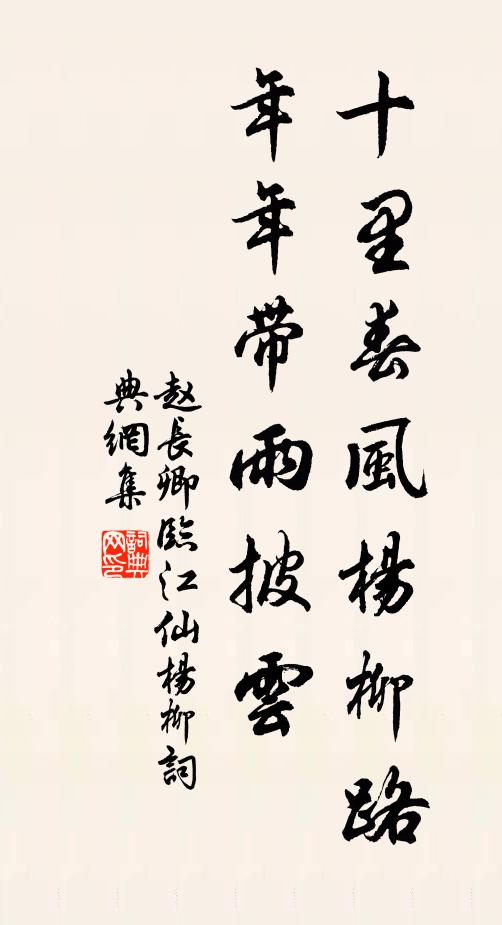 十里春風楊柳路
年年帶雨披雲
赵長卿臨江仙楊柳詞
典網集
詞典网印